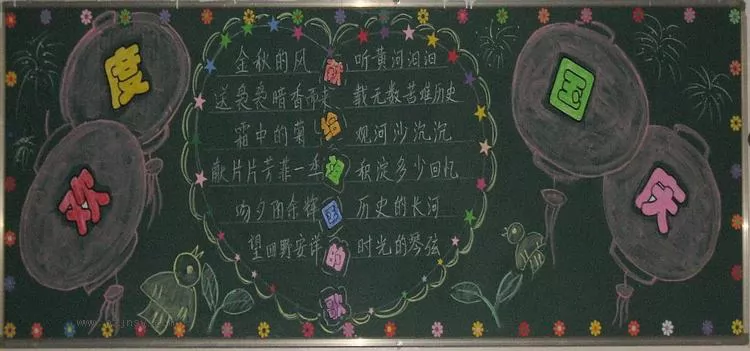 欢度国庆
献给祖国的歌
金秋的风
送袅袅暗香而来
霜中的菊
献片片芳菲一季
夕阳余辉
望田野安详
听黄河汩汩
载无数苦难历史
观河沙沉沉
积淀多少回忆
历史的长河
时光的琴弦